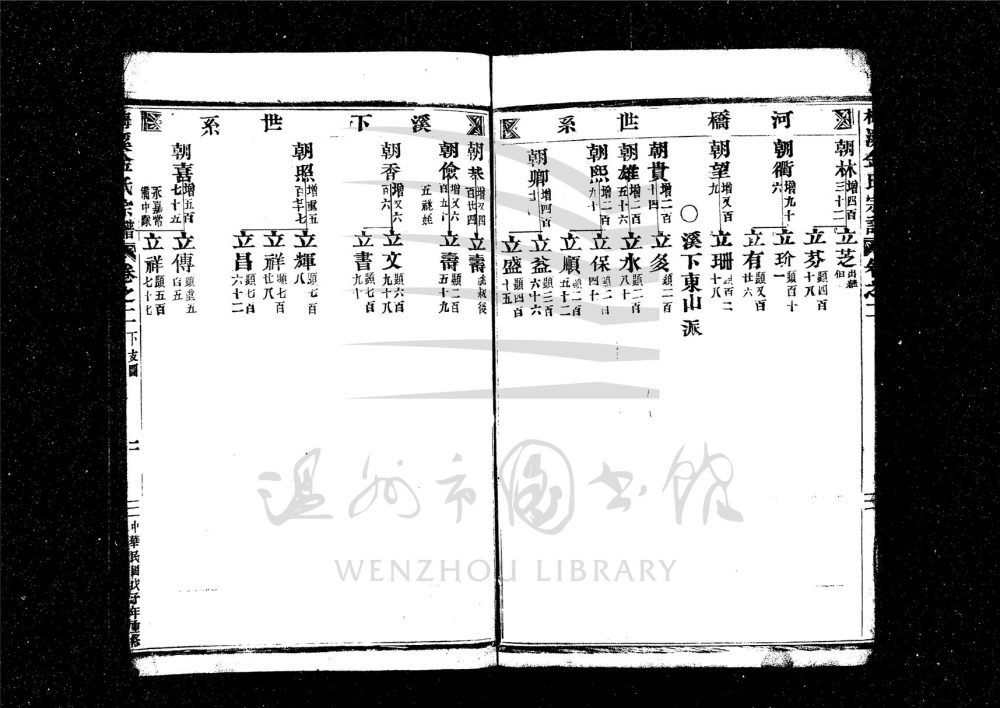 河橋世系
朝林 增四百三十二
立芝 出繼
立芬 顯四百十八
朝衢 增九十六
立玠 顯百十一
立有 顯又百廿六
朝望 增又百九
立珊 顯百二十八
○溪下東山派
朝貴 增二百十四
立炎 顯二百
朝雄 增二百五十六
立水 顯二百八十
朝熙 增二百九十
立保 顯二百四十
立順 顯二百五十二
朝卿 增四百
立益 顯三百六十六
立盛 顯四百十五
溪下世系
朝恭 增又四百廿四
立壽
朝儉 增又六百五十
立壽 顯二百五十九
朝香 增又六百六
立文 顯六百九十八
立書 顯七百九十
朝照 增五百七
立輝 顯七百八
立祥 顯七百廿八
立昌 顯七百六十二
朝喜 增五百七十五
永嘉常
立傳 顯五百五
立祥 顯五百七十七
梅溪金氏宗譜 卷之二 下支圖 二 中華民國戊子年重修
溫州市圖書館
WENZHOU LIBRARY